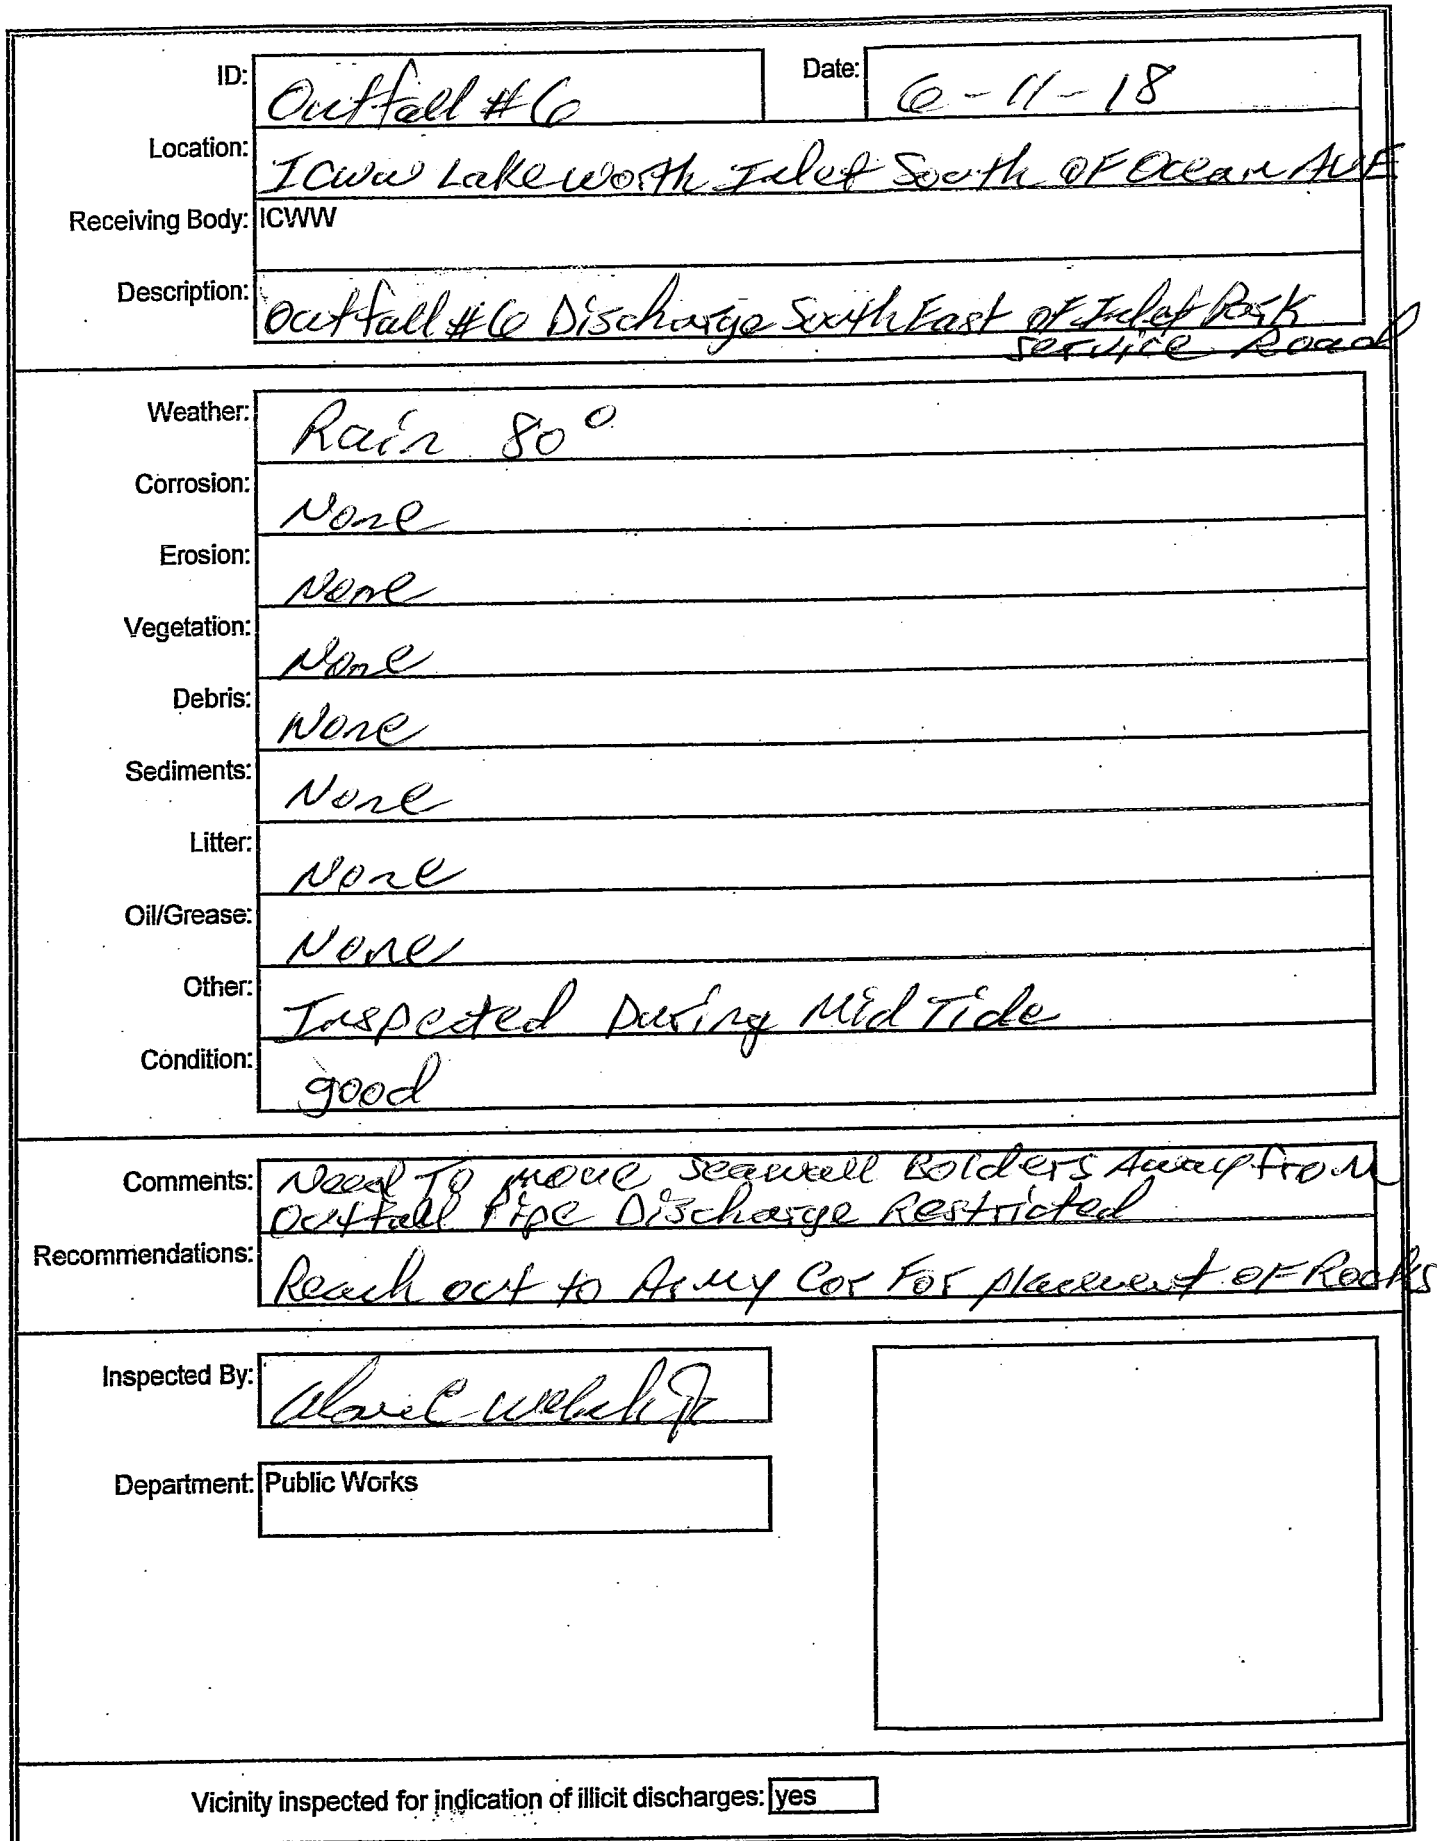 ID: Outfall #6 Date: 6-11-18
Location: ICWW Lake Worth Inlet South OF Ocean AVE
Receiving Body: ICWW
Description: Outfall #6 Discharge South East OF Inlet Park
Service Road
Weather: Rain 80°
Corrosion: None
Erosion: None
Vegetation: None
Debris: None
Sediments: None
Litter: None
Oil/Grease: None
Other: Inspected During Mid Tide
Condition: good
Comments: Need To move Seawall Bolders Away from
Outfall Pipe Discharge Restricted
Recommendations: Reach out to Army Cor For placement OF Rocks
Inspected By:
Department: Public Works
Vicinity inspected for indication of illicit discharges: yes